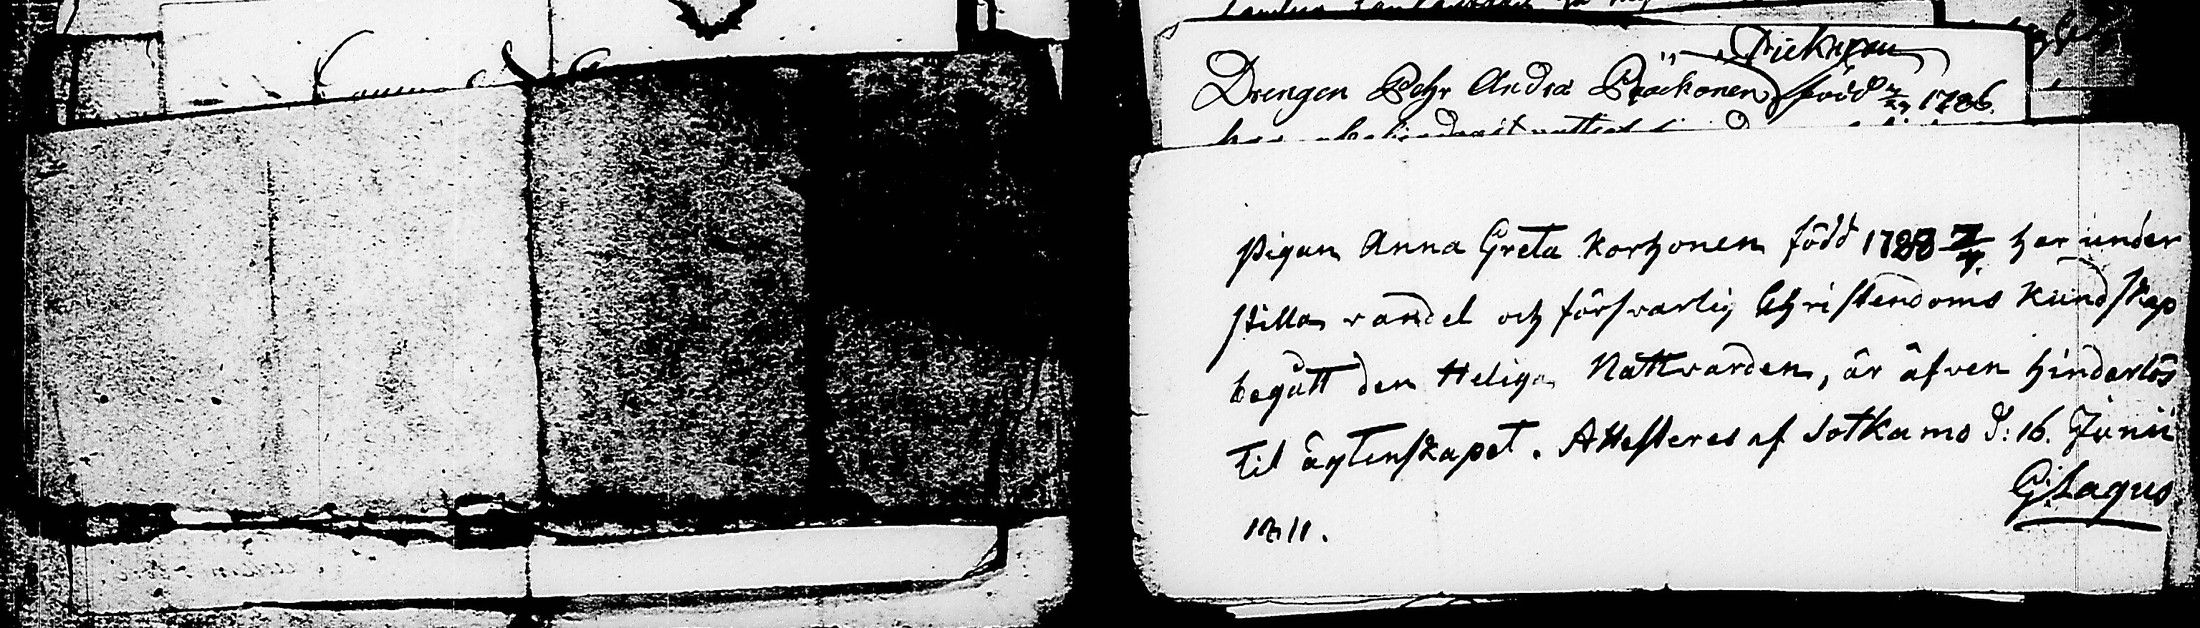 Drengen Pehr Andrs Pääkonen född 2/27 1786.
Pigan Anna Greta Korhonen född 1788 7/4. har under
stilla vandel och försvarlig Christendoms Kundskap
begått den Heliga Nattvarden, är äfven hinderlös
til ägtenskapet. Attesteres af Sotkamo d: 16. Junii
G. Lagus
1811.